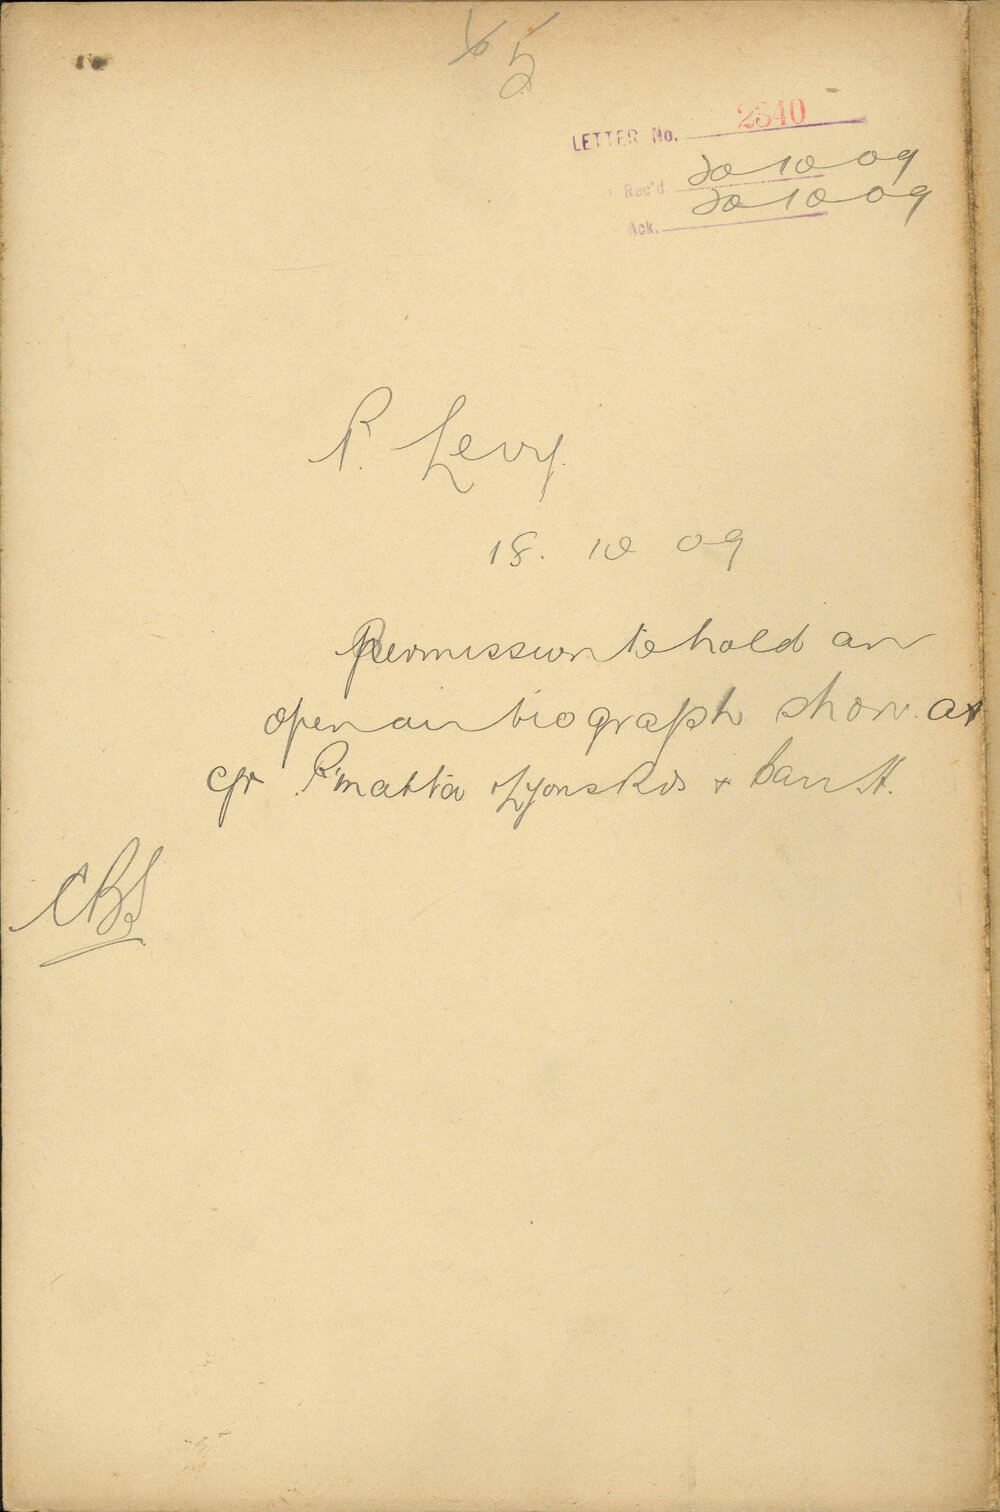 5
LETTER No. 2540
Rec'd. 20 10 09
Ack. 20 10 09
P. Levy.
18. 10 09
Permission to hold an
open air biograph show at
cnr P'matta Lyons Rds & Barr St.
CBS